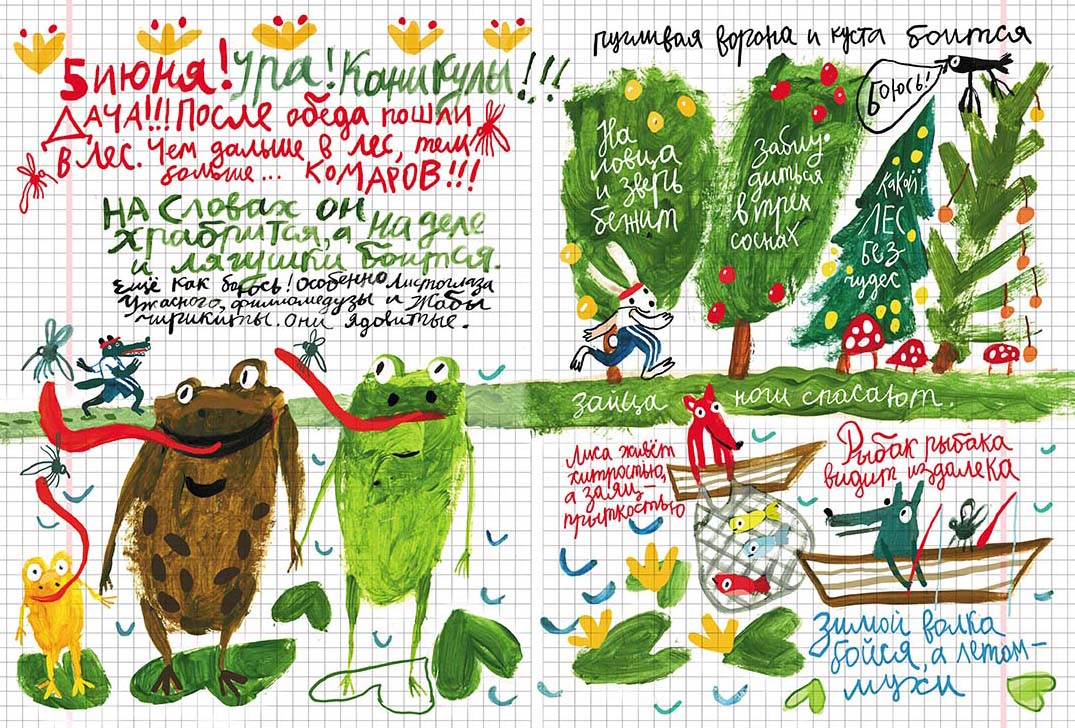 5 июня! Ура! Каникулы!!!
ДАЧА!!! После обеда пошли
в лес. Чем дальше в лес, тем
больше... КОМАРОВ!!!
НА СЛОВАХ ОН
храбрится, а на деле
и лягушки боится.
Ещё как боюсь! Особенно Листоглаза
Ужасного, филломедузы и Жабы
чирикиты. Они ядовитые.
пуганая ворона и куста боится
Боюсь!
На
ловца
и зверь
бежит
Заблу-
диться
в трёх
соснах
Какой
ЛЕС
без
чудес
зайца ноги спасают.
Лиса живёт
хитростью,
а заяц—
прыткостью
Рыбак рыбака
видит издалека
Зимой волка
бойся, а летом—
мухи